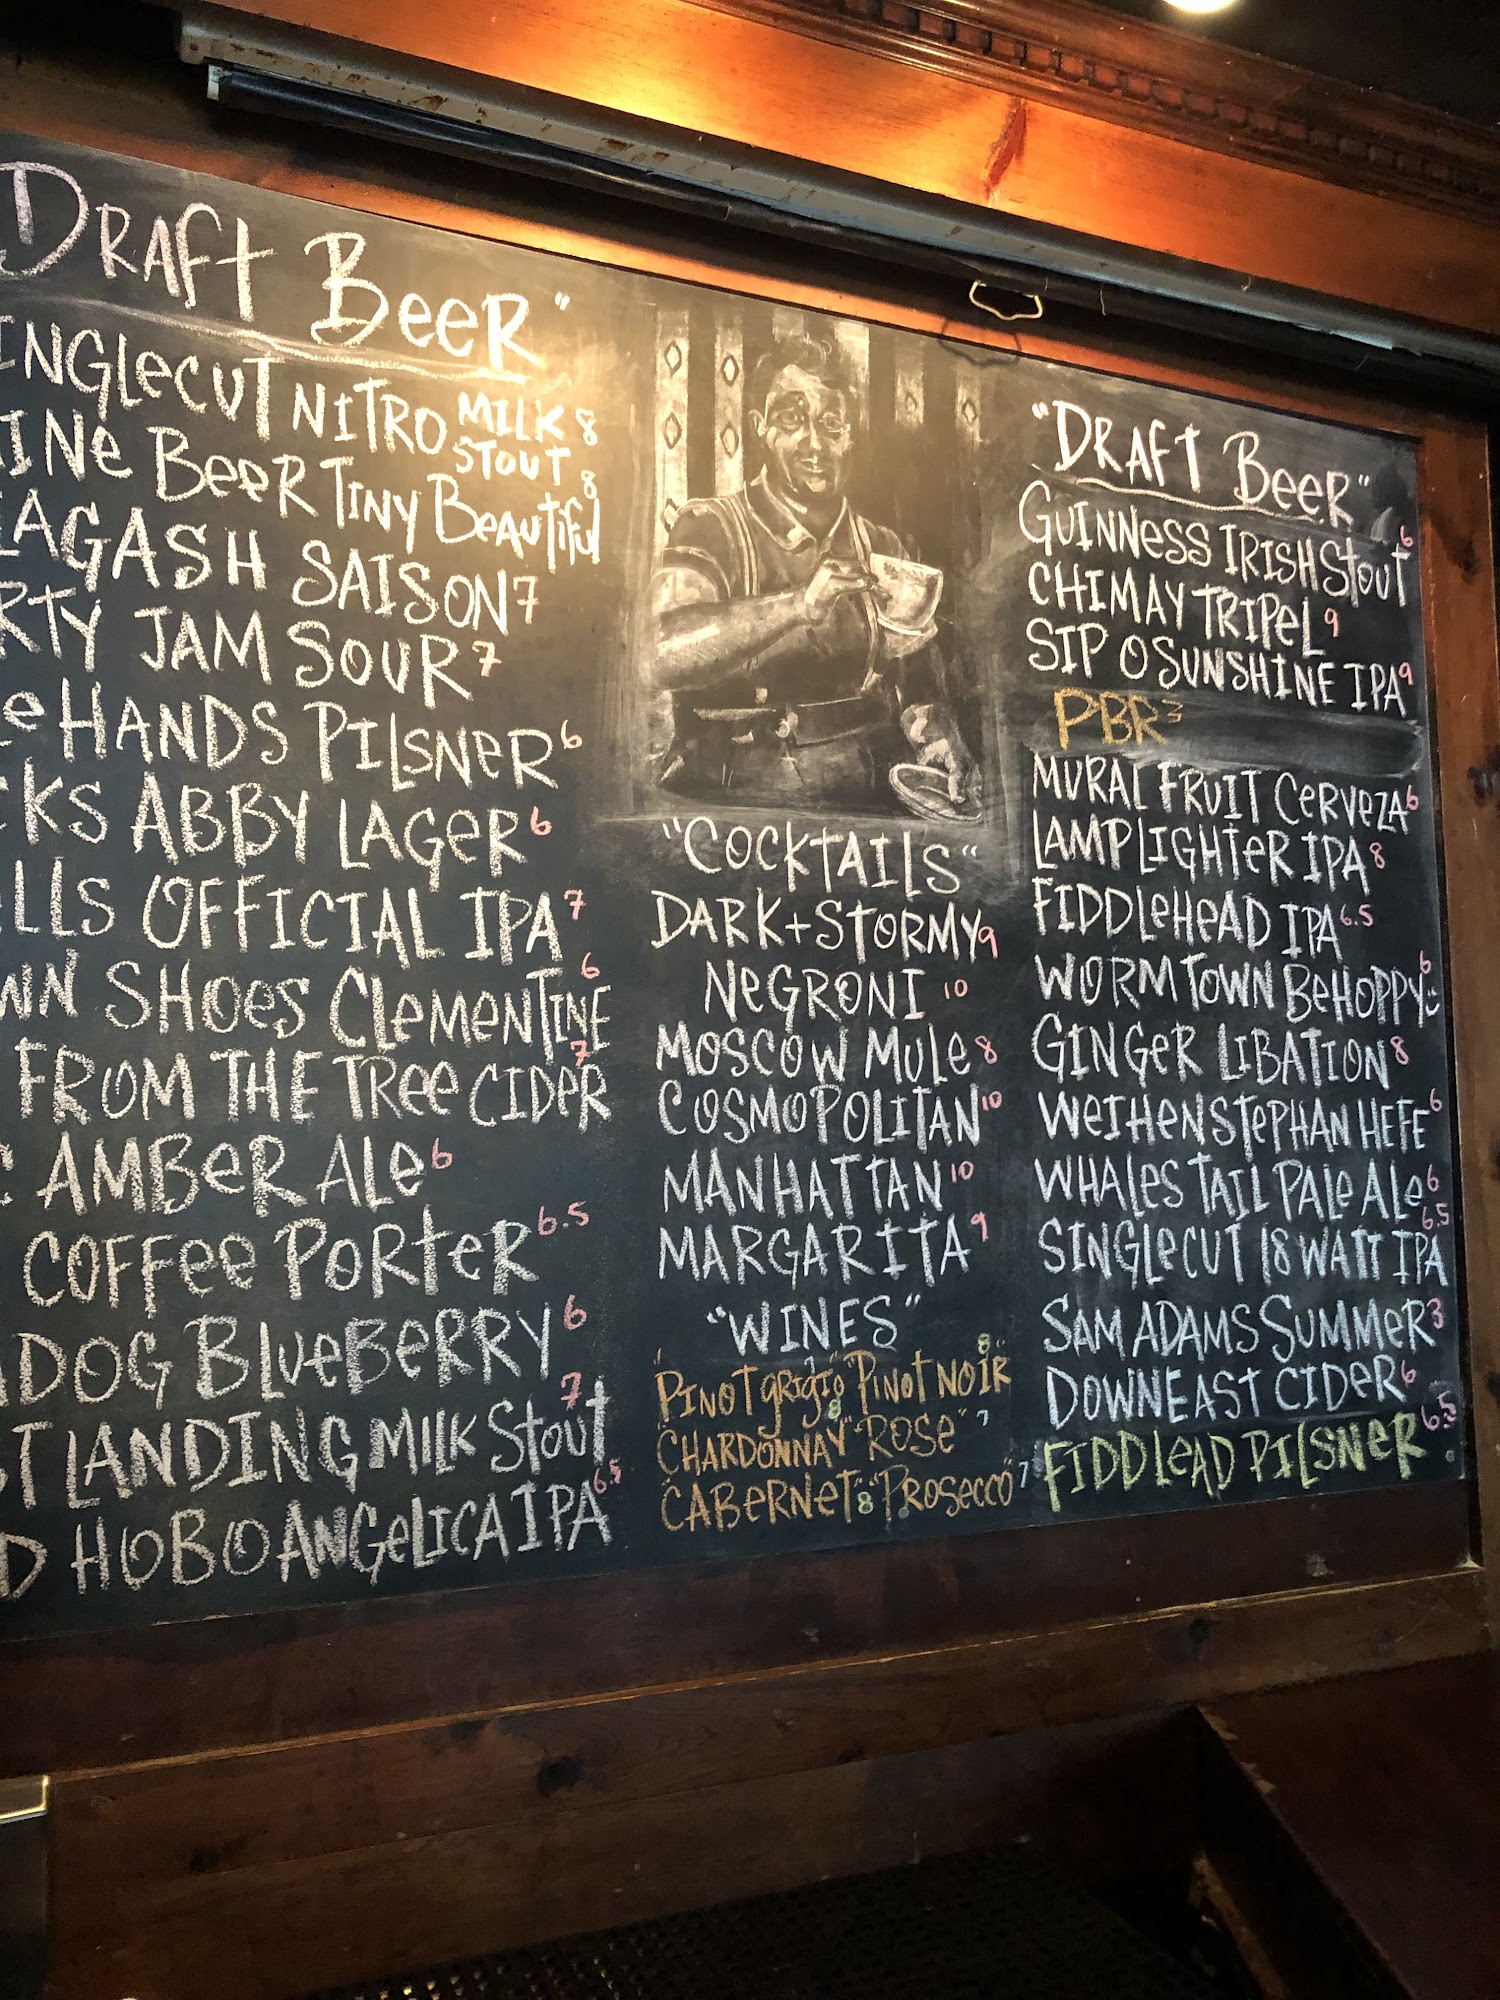 "Draft Beer"
INGLECUT NITRO MILK STOUT 8
INE BEER TINY BEAUTIFUL 8
LAGASH SAISON 7
RTY JAM SOUR 7
E HANDS PILSNER 6
CKS ABBY LAGER 6
ELLS OFFICIAL IPA 7
WN SHOES CLEMENTINE 6
FROM THE TREE CIDER 7
C AMBER ALE 6
COFFEE PORTER 6.5
DOG BLUEBERRY 6
T LANDING MILK STOUT 7
D HOBO ANGELICA IPA 6.5
"COCKTAILS"
DARK + STORMY 9
NEGRONI 10
MOSCOW MULE 8
COSMOPOLITAN 10
MANHATTAN 10
MARGARITA 9
"WINES"
"PINOT GRIGIO" "PINOT NOIR" 8
CHARDONNAY 8 "ROSE" 7
CABERNET" 8 "PROSECCO" 7
"DRAFT BEER"
GUINNESS IRISH STOUT 6
CHIMAY TRIPEL 9
SIP O SUNSHINE IPA 9
PBR 3
MURAL FRUIT CERVEZA 6
LAMPLIGHTER IPA 8
FIDDLEHEAD IPA 6.5
WORMTOWN BEHOPPY 6
GINGER LIBATION 8
WEIHENSTEPHAN HEFE 6
WHALES TAIL PALE ALE 6
SINGLECUT 18 WATT IPA 6.5
SAM ADAMS SUMMER 3
DOWNEAST CIDER 6
FIDDLEAD PILSNER 6.5